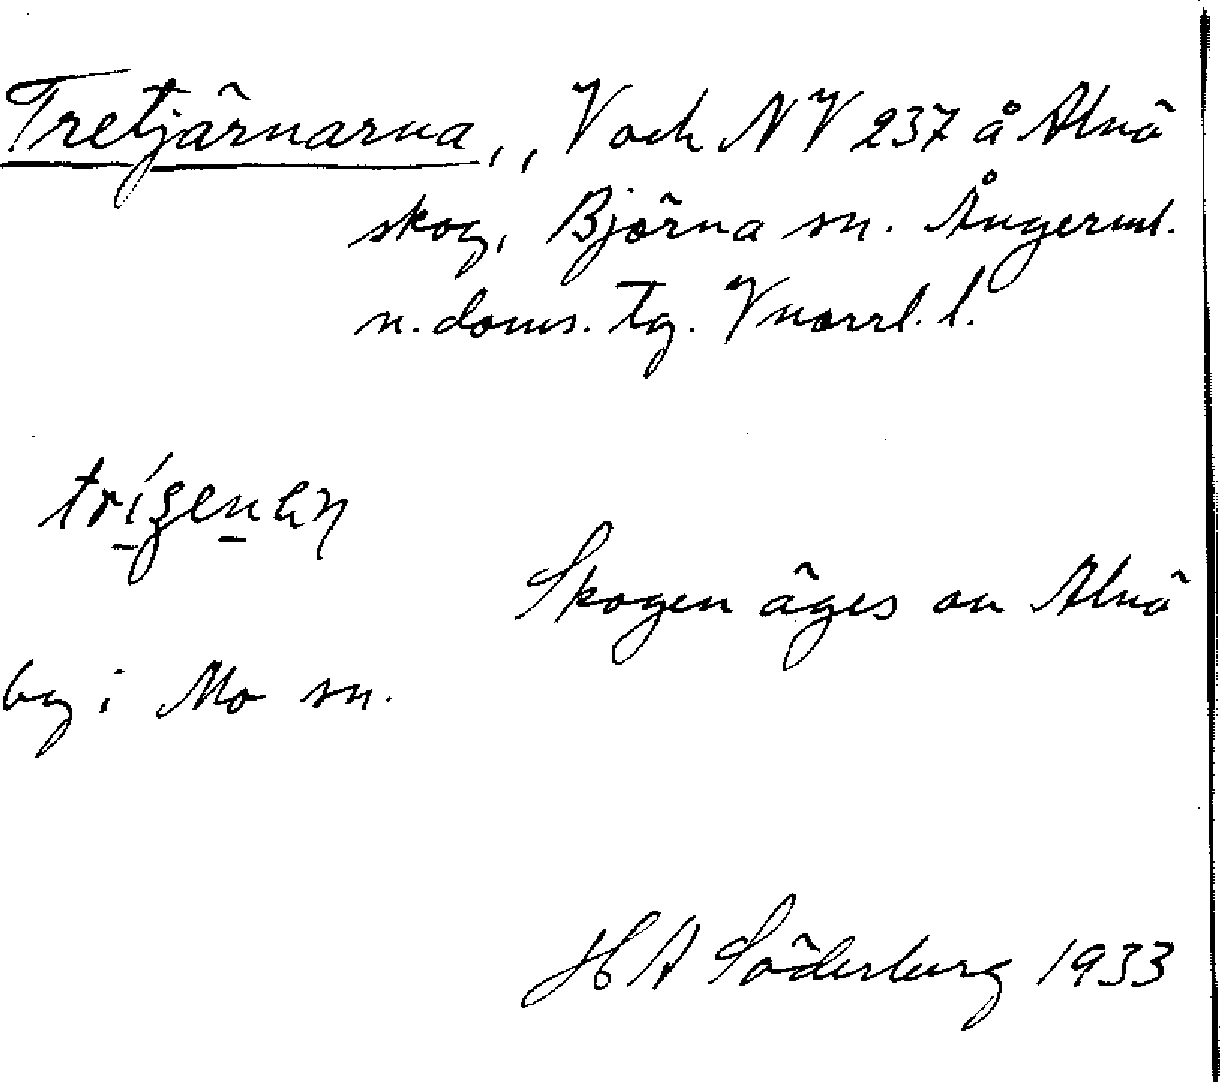 Tretjärnarna, , V och NV 237 å Alnö
skog, Björna sn. Ångerml.
n. doms. tg. V norrl. l.
Skogen äges av Alnö
by i Mo sn.
H A Söderberg 1933